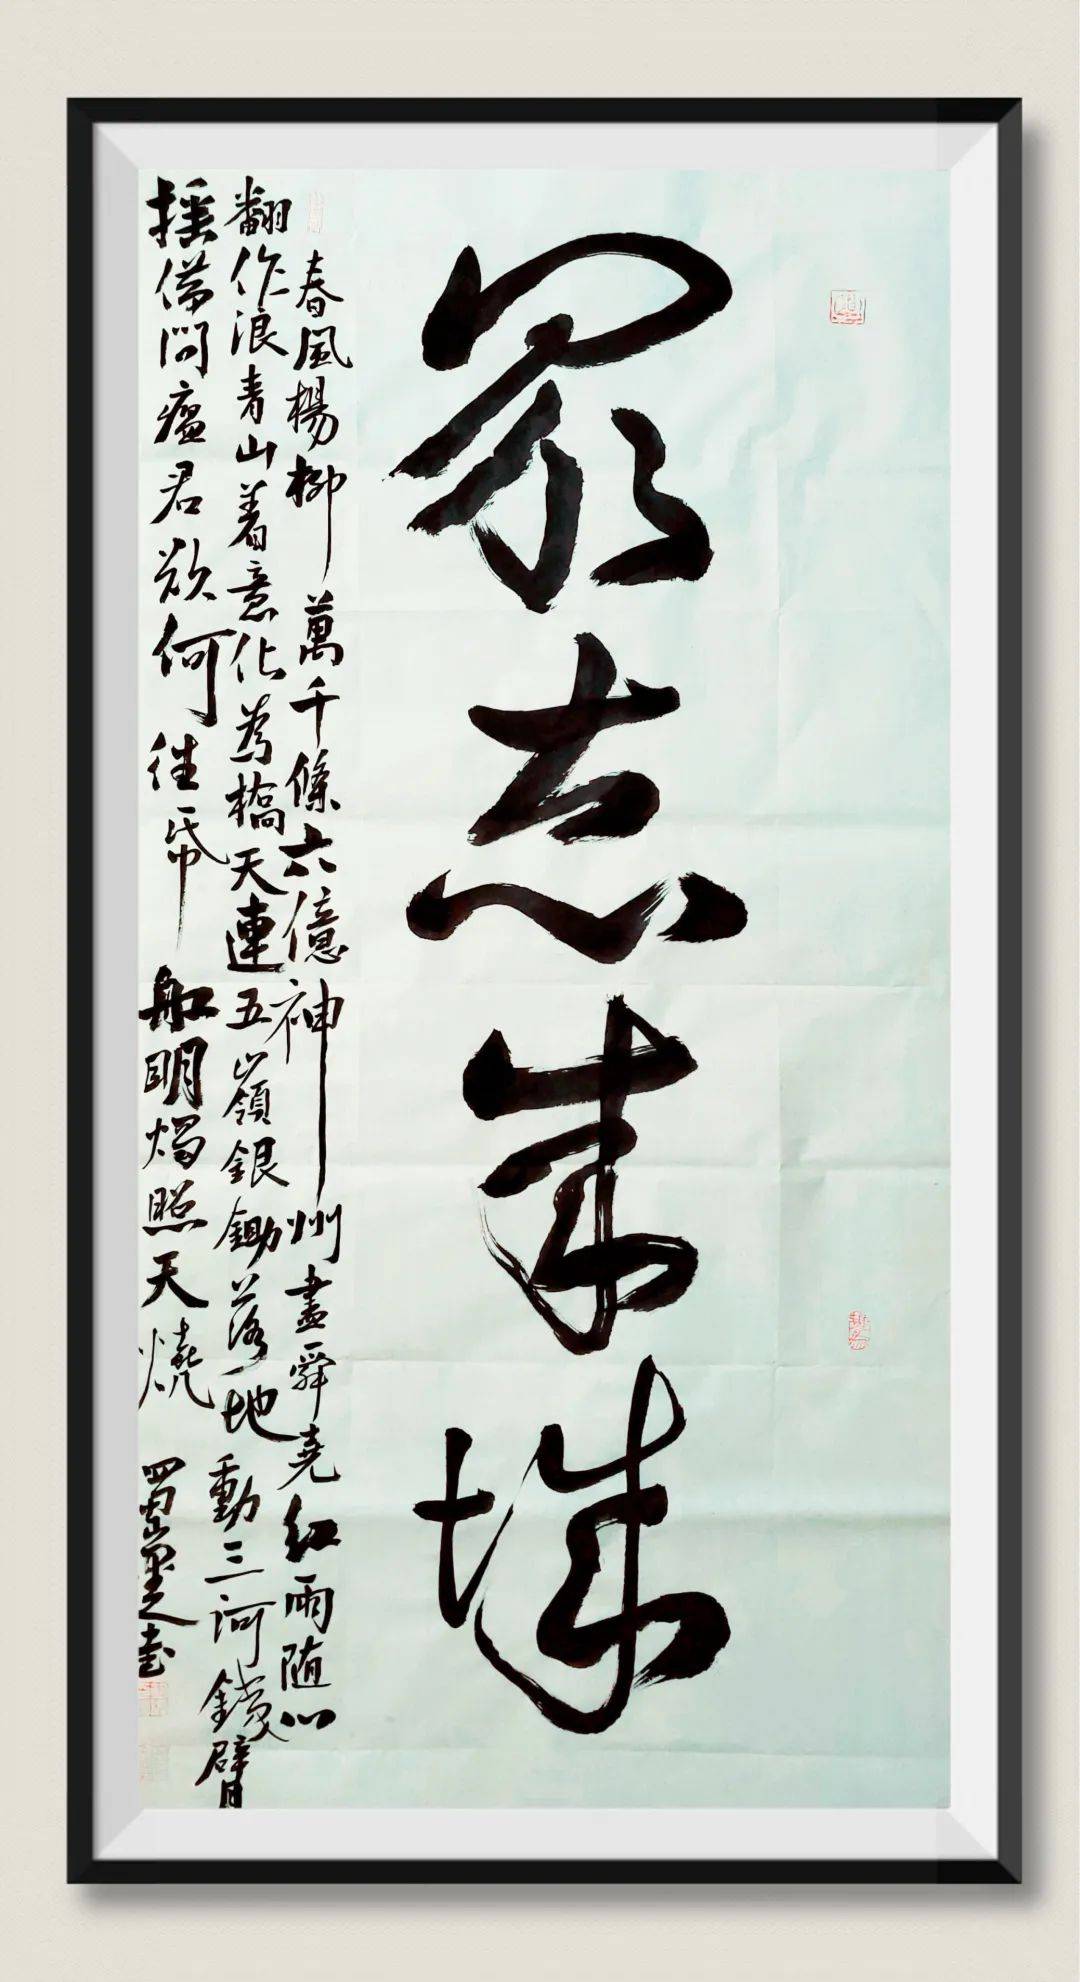 眾志成城
春風楊柳萬千條六億神州盡舜堯紅雨随心
翻作浪青山着意化為橋天連五嶺銀鋤落地動三河鐵臂
摇借問瘟君欲何往帋船明燭照天燒
蜀山